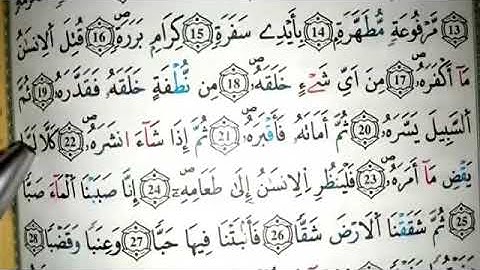 (13) مَّرْفُوعَةٍ مُّطَهَّرَةٍۢ (14) بِأَيْدِے سَفَرَةٍ (15) كِرَامٍۢ بَرَرَةٍۖ (16) قُتِلَ اَلِانسَٰنُ
مَآ أَكْفَرَهُۥۖ (17) مِنَ اَيِّ شَےْءٍ خَلَقَهُۥۖ (18) مِن نُّطْفَةٍ خَلَقَهُۥ فَقَدَّرَهُۥ (19) ثُمَّ
اَلسَّبِيلَ يَسَّرَهُۥ (20) ثُمَّ أَمَاتَهُۥ فَأَقْبَرَهُۥ (21) ثُمَّ إِذَا شَآءَ انشَرَهُۥۖ (22) كَلَّا لَمَّا
يَقْضِ مَآ أَمَرَهُۥۖ (23) فَلْيَنظُرِ اِلِانسَٰنُ إِلَىٰ طَعَامِهِۦٓ (24) إِنَّا صَبَبْنَا اَلْمَآءَ صَبّٗا
(25) ثُمَّ شَقَقْنَا اَلَارْضَ شَقّٗا (26) فَأَنۢبَتْنَا فِيهَا حَبّٗا (27) وَعِنَبٗا وَقَضْبٗا (28)